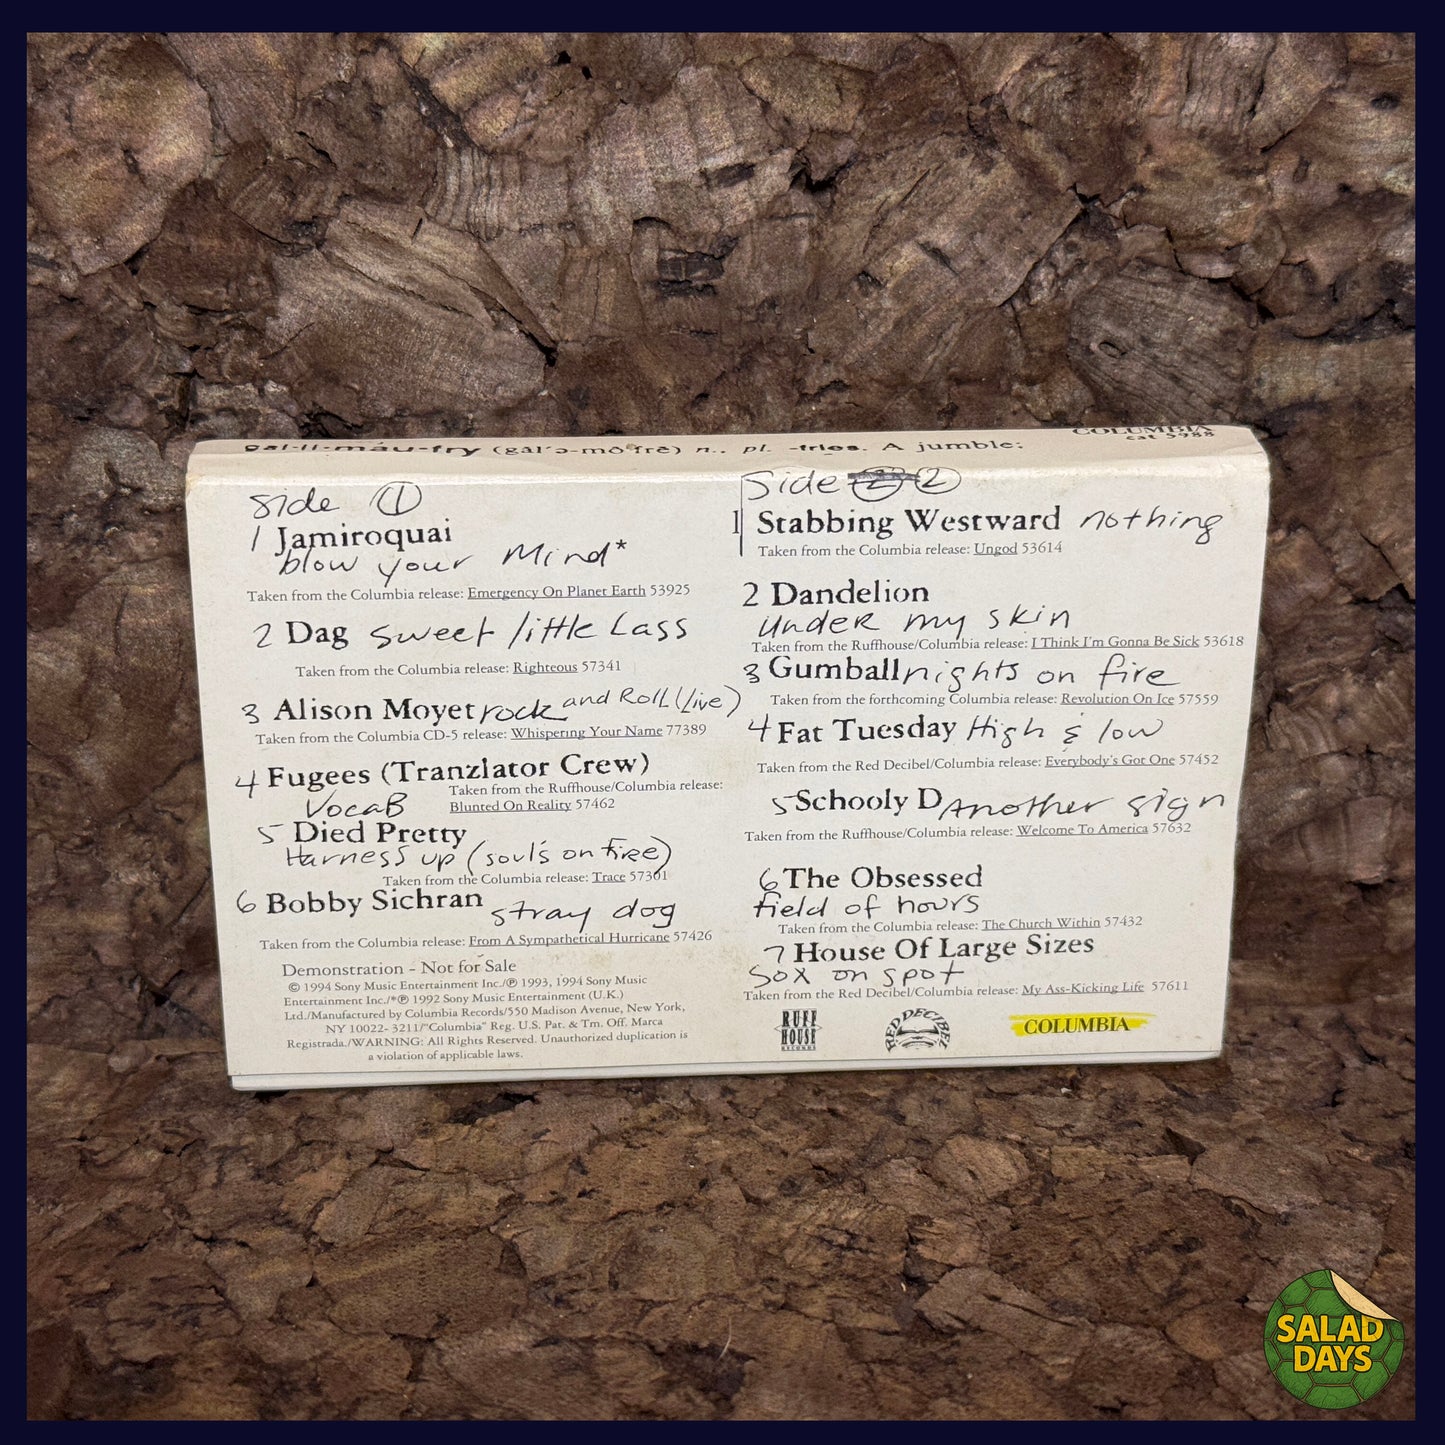 gal·li·máu·fry (găl′ə-mô′frē) n., pl. -fries. A jumble;
COLUMBIA
cat 5988
Side 1
1 Jamiroquai
blow your Mind*
Taken from the Columbia release: Emergency On Planet Earth 53925
2 Dag sweet little Lass
Taken from the Columbia release: Righteous 57341
3 Alison Moyet rock and Roll (live)
Taken from the Columbia CD-5 release: Whispering Your Name 77389
4 Fugees (Tranzlator Crew)
Taken from the Ruffhouse/Columbia release:
VocaB Blunted On Reality 57462
5 Died Pretty
Harness up (soul's on fire)
Taken from the Columbia release: Trace 57361
6 Bobby Sichran stray dog
Taken from the Columbia release: From A Sympathetical Hurricane 57426
Demonstration - Not for Sale
© 1994 Sony Music Entertainment Inc./℗ 1993, 1994 Sony Music
Entertainment Inc./*℗ 1992 Sony Music Entertainment (U.K.)
Ltd./Manufactured by Columbia Records/550 Madison Avenue, New York,
NY 10022- 3211/"Columbia" Reg. U.S. Pat. & Tm. Off. Marca
Registrada./WARNING: All Rights Reserved. Unauthorized duplication is
a violation of applicable laws.
Side 2 2
1 Stabbing Westward nothing
Taken from the Columbia release: Ungod 53614
2 Dandelion
under my skin
Taken from the Ruffhouse/Columbia release: I Think I'm Gonna Be Sick 53618
3 Gumball nights on fire
Taken from the forthcoming Columbia release: Revolution On Ice 57559
4 Fat Tuesday High & low
Taken from the Red Decibel/Columbia release: Everybody's Got One 57452
5 Schooly D Another sign
Taken from the Ruffhouse/Columbia release: Welcome To America 57632
6 The Obsessed
field of hours
Taken from the Columbia release: The Church Within 57432
7 House Of Large Sizes
Sox on spot
Taken from the Red Decibel/Columbia release: My Ass-Kicking Life 57611
RUFF
HOUSE
RECORDS
RED DECIBEL
COLUMBIA
SALAD
DAYS